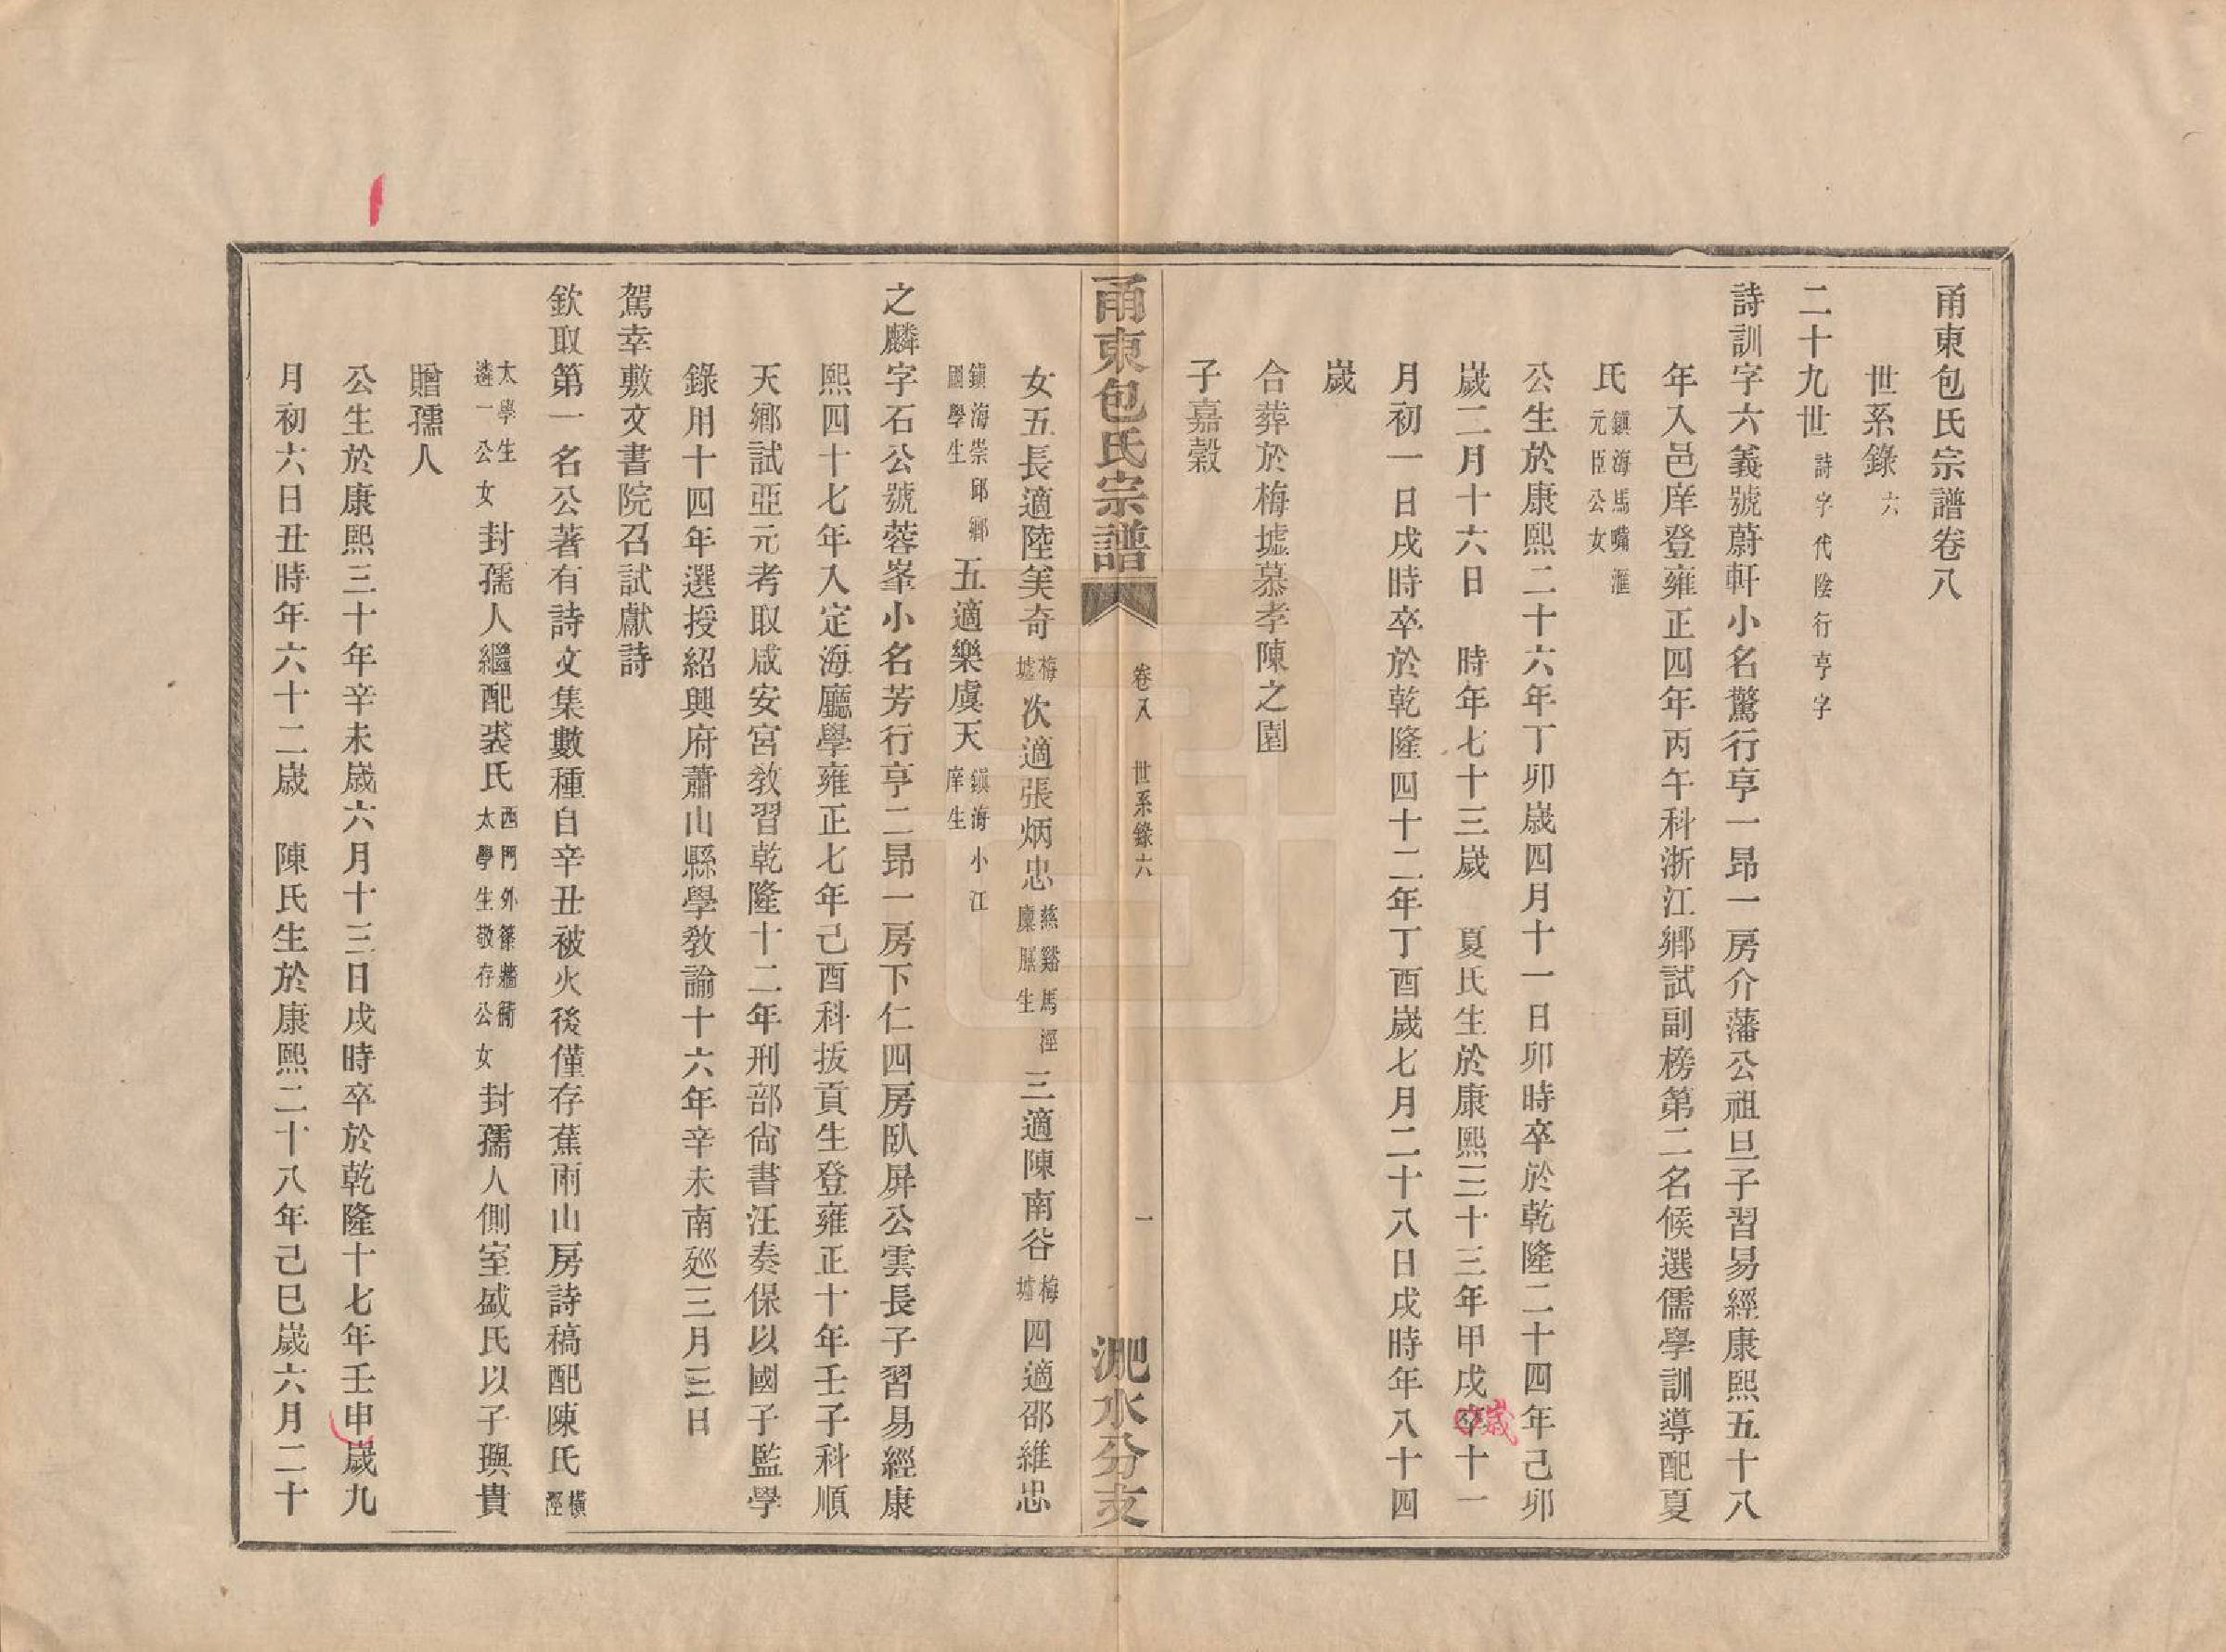 甬東包氏宗譜卷八
世系錄六
二十九世詩字代陰行亨字
詩訓字六義號蔚軒小名驚行亨一昂一房介藩公祖旦子習易經康熙五十八
年入邑庠登雍正四年丙午科浙江鄉試副榜第二名候選儒學訓導配夏
氏鎮海馬嘴滙元臣公女
公生於康熙二十六年丁卯歲四月十一日卯時卒於乾隆二十四年己卯
歲二月十六日　時年七十三歲　夏氏生於康熙三十三年甲戌卒十一
歲
月初一日戌時卒於乾隆四十二年丁酉歲七月二十八日戌時年八十四
歲
合葬於梅墟慕孝陳之園
子嘉穀
甬東包氏宗譜
卷八　世系錄六
一
淝水分支
女五長適陸美奇梅墟次適張炳忠慈谿馬涇廩膳生三適陳南谷梅墟四適邵維忠
鎮海崇邱鄉國學生五適樂虞天鎮海小江庠生
之麟字石公號蓉峯小名芳行亨二昂一房下仁四房臥屏公雲長子習易經康
熙四十七年入定海廳學雍正七年己酉科拔貢生登雍正十年壬子科順
天鄉試亞元考取咸安宮教習乾隆十二年刑部尙書汪奏保以國子監學
錄用十四年選授紹興府蕭山縣學教諭十六年辛未南廵三月三日
駕幸敷文書院召試獻詩
欽取第一名公著有詩文集數種自辛丑被火後僅存蕉雨山房詩稿配陳氏橫涇
太學生遴一公女封孺人繼配裘氏西門外篠牆衖太學生敬存公女封孺人側室盛氏以子璵貴
贈孺人
公生於康熙三十年辛未歲六月十三日戌時卒於乾隆十七年壬申歲九
月初六日丑時年六十二歲　陳氏生於康熙二十八年己巳歲六月二十